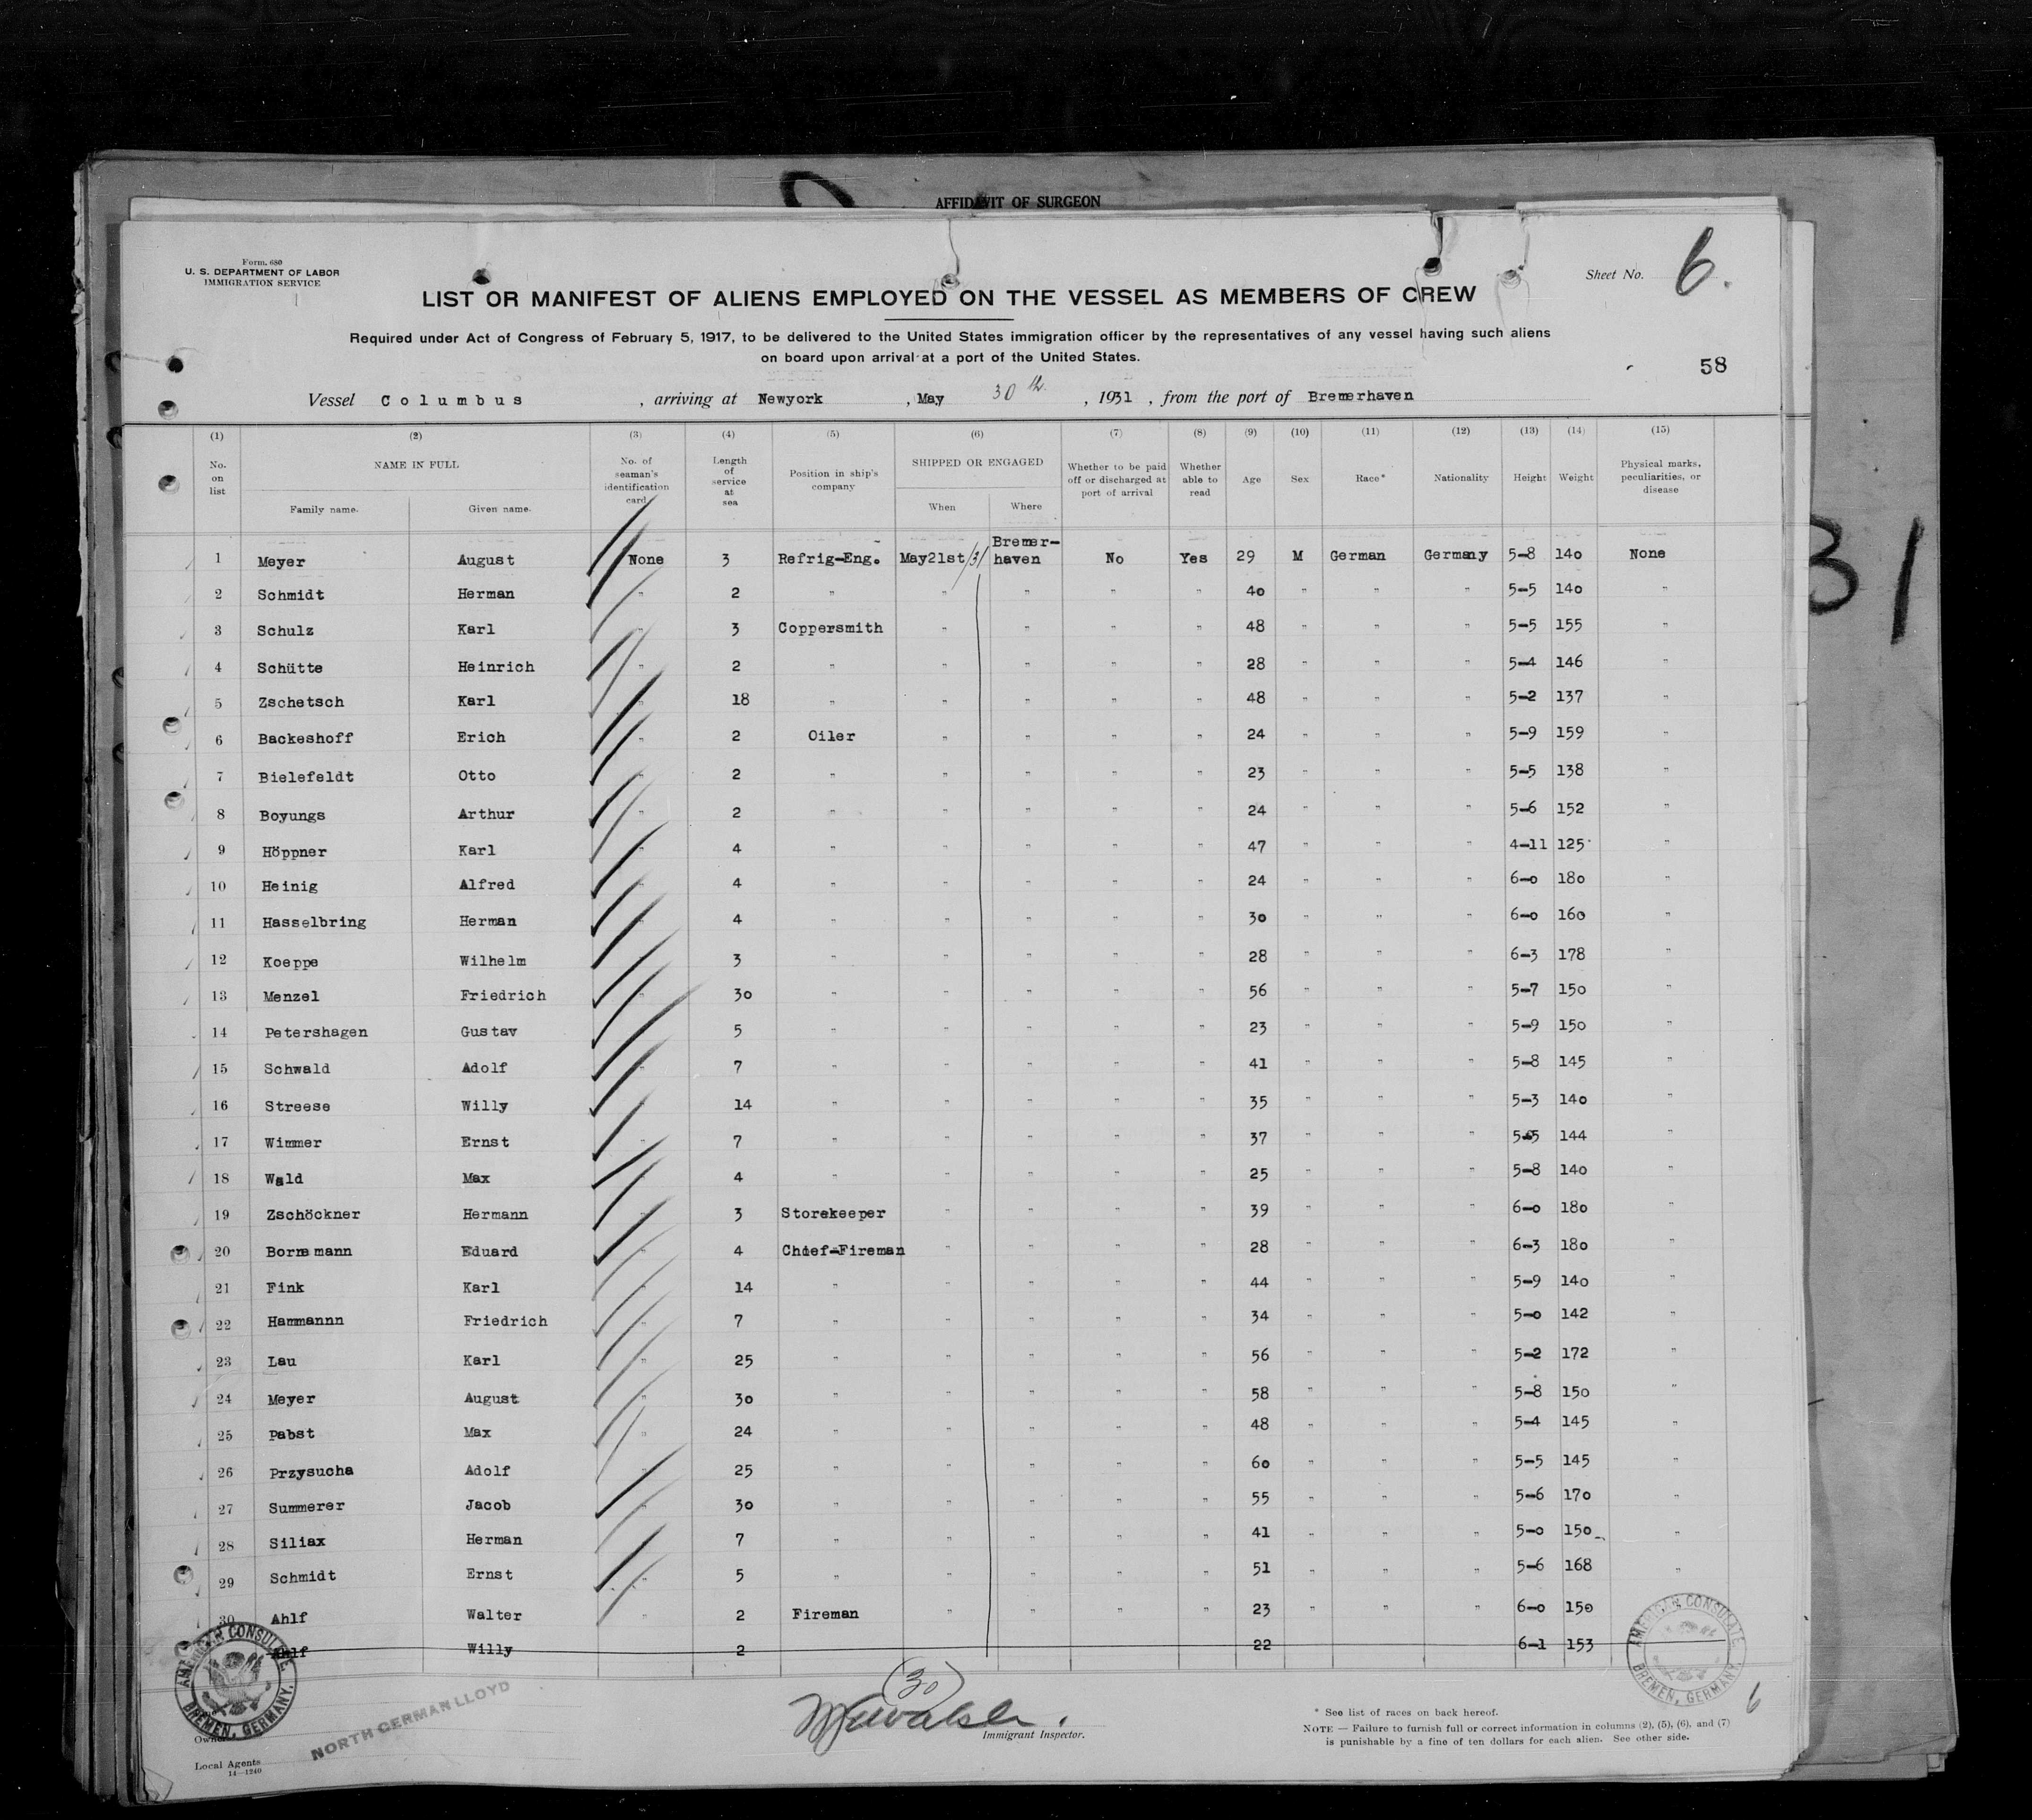 AFFIDAVIT OF SURGEON
Form. 680
U. S. DEPARTMENT OF LABOR
IMMIGRATION SERVICE
Sheet No. 6.
LIST OR MANIFEST OF ALIENS EMPLOYED ON THE VESSEL AS MEMBERS OF CREW
Required under Act of Congress of February 5, 1917, to be delivered to the United States immigration officer by the representatives of any vessel having such aliens
on board upon arrival at a port of the United States.
58
Vessel Columbus , arriving at Newyork , May 30th , 1931 , from the port of Bremerhaven
(1) (2) (3) (4) (5) (6) (7) (8) (9) (10) (11) (12) (13) (14) (15)
No. on list NAME IN FULL Family name. Given name. No. of seaman's identification card Length of service at sea Position in ship's company SHIPPED OR ENGAGED When Where Whether to be paid off or discharged at port of arrival Whether able to read Age Sex Race* Nationality Height Weight Physical marks, peculiarities, or disease
1 Meyer August None 3 Refrig-Eng. May21st/31 Bremerhaven No Yes 29 M German Germany 5-8 140 None
2 Schmidt Herman " 2 " " " " " 40 " " " 5-5 140 "
3 Schulz Karl " 3 Coppersmith " " " " 48 " " " 5-5 155 "
4 Schütte Heinrich " 2 " " " " " 28 " " " 5-4 146 "
5 Zschetsch Karl " 18 " " " " " 48 " " " 5-2 137 "
6 Backeshoff Erich " 2 Oiler " " " " 24 " " " 5-9 159 "
7 Bielefeldt Otto " 2 " " " " " 23 " " " 5-5 138 "
8 Boyungs Arthur " 2 " " " " " 24 " " " 5-6 152 "
9 Höppner Karl " 4 " " " " " 47 " " " 4-11 125 "
10 Heinig Alfred " 4 " " " " " 24 " " " 6-0 180 "
11 Hasselbring Herman " 4 " " " " " 30 " " " 6-0 160 "
12 Koeppe Wilhelm " 3 " " " " " 28 " " " 6-3 178 "
13 Menzel Friedrich " 30 " " " " " 56 " " " 5-7 150 "
14 Petershagen Gustav " 5 " " " " " 23 " " " 5-9 150 "
15 Schwald Adolf " 7 " " " " " 41 " " " 5-8 145 "
16 Streese Willy " 14 " " " " " 35 " " " 5-3 140 "
17 Wimmer Ernst " 7 " " " " " 37 " " " 5-5 144 "
18 Wald Max " 4 " " " " " 25 " " " 5-8 140 "
19 Zschöckner Hermann " 3 Storekeeper " " " " 39 " " " 6-0 180 "
20 Bornmann Eduard " 4 Chief-Fireman " " " " 28 " " " 6-3 180 "
21 Fink Karl " 14 " " " " " 44 " " " 5-9 140 "
22 Hammannn Friedrich " 7 " " " " " 34 " " " 5-0 142 "
23 Lau Karl " 25 " " " " " 56 " " " 5-2 172 "
24 Meyer August " 30 " " " " " 58 " " " 5-8 150 "
25 Pabst Max " 24 " " " " " 48 " " " 5-4 145 "
26 Przysucha Adolf " 25 " " " " " 60 " " " 5-5 145 "
27 Summerer Jacob " 30 " " " " " 55 " " " 5-6 170 "
28 Siliax Herman " 7 " " " " " 41 " " " 5-0 150 "
29 Schmidt Ernst " 5 " " " " " 51 " " " 5-6 168 "
30 Ahlf Walter " 2 Fireman " " " " 23 " " " 6-0 150
Ahlf Willy 2 22 6-1 153
AMERICAN CONSULATE BREMEN, GERMANY.
AMERICAN CONSULATE BREMEN, GERMANY.
30
6
Immigrant Inspector.
NORTH GERMAN LLOYD
Owners
Local Agents
14—1240
* See list of races on back hereof.
NOTE — Failure to furnish full or correct information in columns (2), (5), (6), and (7)
is punishable by a fine of ten dollars for each alien. See other side.
31